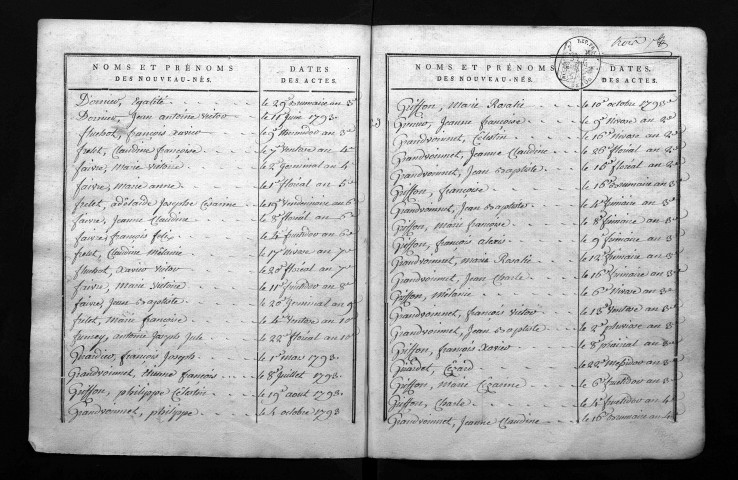 NOMS ET PRÉNOMS DES NOUVEAU-NÉS.
DATES DES ACTES.
Dornier, Egalité le 29 Brumaire an 3e
Dornier, Jean antoine victor le 11 Juin 1793
flusbot, françois xavier le 9e Messidor an 3e
frelet, Claudine françoise le 7e ventose an 4e
faivre, marie victoire le 2e Germinal an 4e
faivre, marie anne le 1er floréal an 5e
frelet, adélaïde Josephe Cézarine le 19e vendemiaire an 6e
faivre, Jeanne Claudine le 8e floréal an 6e
faivre, françois felix le 4e fructidor an 6e
frelet, Claudine Mélanie le 17e nivose an 7e
flusbot, xavier victor le 20e floréal an 7e
faivre, marie victoire le 11e fructidor an 8e
faivre, Jean Baptiste le 20e Germinal an 9e
frelet, marie francoise le 4e ventose an 10e
fumey, antoine Joseph Jule le 22e floréal an 10e
Girardier, françois Joseph le 1er mars 1793
Grandvoinnet, Etienne francois le 8e Juillet 1793
Griffon, philippe Célestin le 19e aout 1793
Grandvoinnet, philippe le 4 octobre 1793
NOMS ET PRÉNOMS DES NOUVEAU-NÉS.
DATES DES ACTES.
Griffon, Marie Rosalie le 10e octobre 1793
Jeanne francoise le 9e Nivose an 2e
Grandvoinnet, Célestin le 16e Nivose an 2e
Grandvoinnet, Jeanne Claudine le 26e floréal an 2e
Grandvoinnet, Jean Baptiste le 16e floréal an 2e
Griffon, françoise le 16e Brumaire an 3e
Grandvoinnet, Jean Baptiste le 4e frimaire an 3e
Griffon, Marie françoise le 8e frimaire an 3e
Griffon, françois alexis le 9e frimaire an 3e
Grandvoinnet, Marie Rosalie le 12e frimaire an 3e
Grandvoinnet, Jean Charle le 16e frimaire an 3e
Griffon, Mélanie le 6e Nivose an 3e
Grandvoinnet, françois victor le 13e ventose an 3e
Grandvoinnet, Jean Baptiste le 2e pluviose an 3e
Griffon, françois xavier le 8e prairial an 3e
Girardot, Cézard le 22e Messidor an 3e
Griffon, Marie Cézarine le 6e fructidor an 3e
Griffon, Charle le 4e fructidor an 4e
Grandvoinnet, Jeanne Claudine le 16e Brumaire an 4e